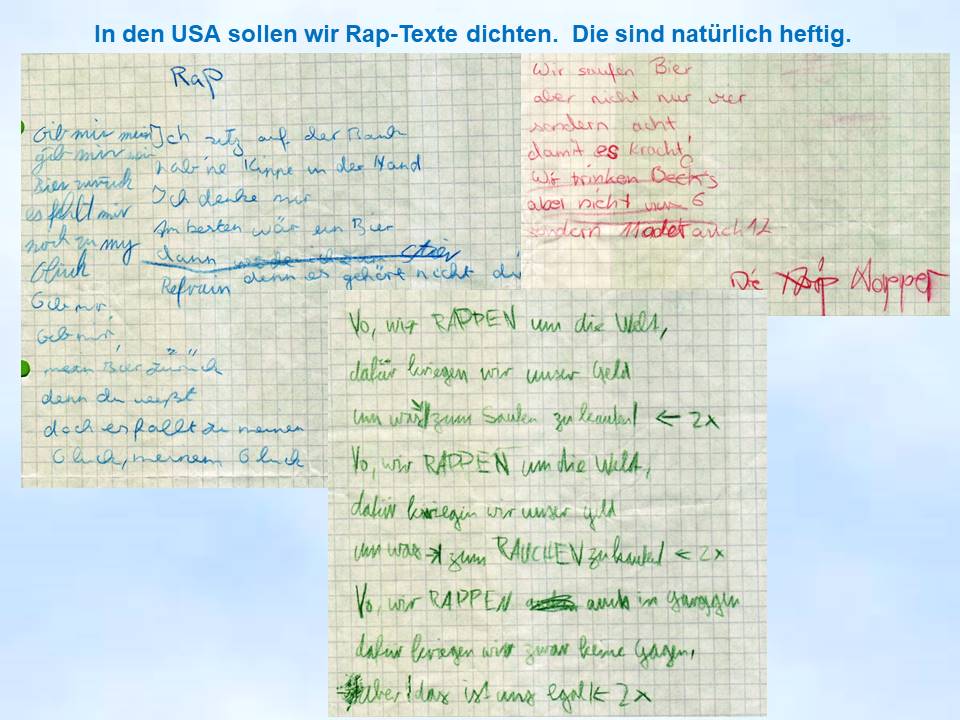 In den USA sollen wir Rap-Texte dichten. Die sind natürlich heftig.
Rap
Gib mir mein
gib mir mein
Bier zurück
es fehlt mir
noch zu my
Glück
Gib mir,
Gib mir,
mein Bier zurück
denn du weißt
doch es fällt zu meinem
Glück, meinem Glück
Ich sitz auf der Bank
hab'ne Kippe in der Hand
Ich denke mir
Am besten wär ein Bier
dann
Refrain denn es gehört nicht dir
Wir saufen Bier
aber nicht nur vier
sondern acht
damit es kracht!
Wir trinken Beck's
aber nicht nur 6
sondern auch 12
Die Rap
Yo, wir RAPPEN um die Welt,
dafür kriegen wir unser Geld
um was zum Saufen zu kaufen! ← 2x
Yo, wir RAPPEN um die Welt,
dafür kriegen wir unser geld
um was → zum RAUCHEN zu kaufen! ← 2x
Yo, wir RAPPEN auch in Garagen
dafür kriegen wir zwar keine Gagen,
Aber! das ist uns egal! ← 2x